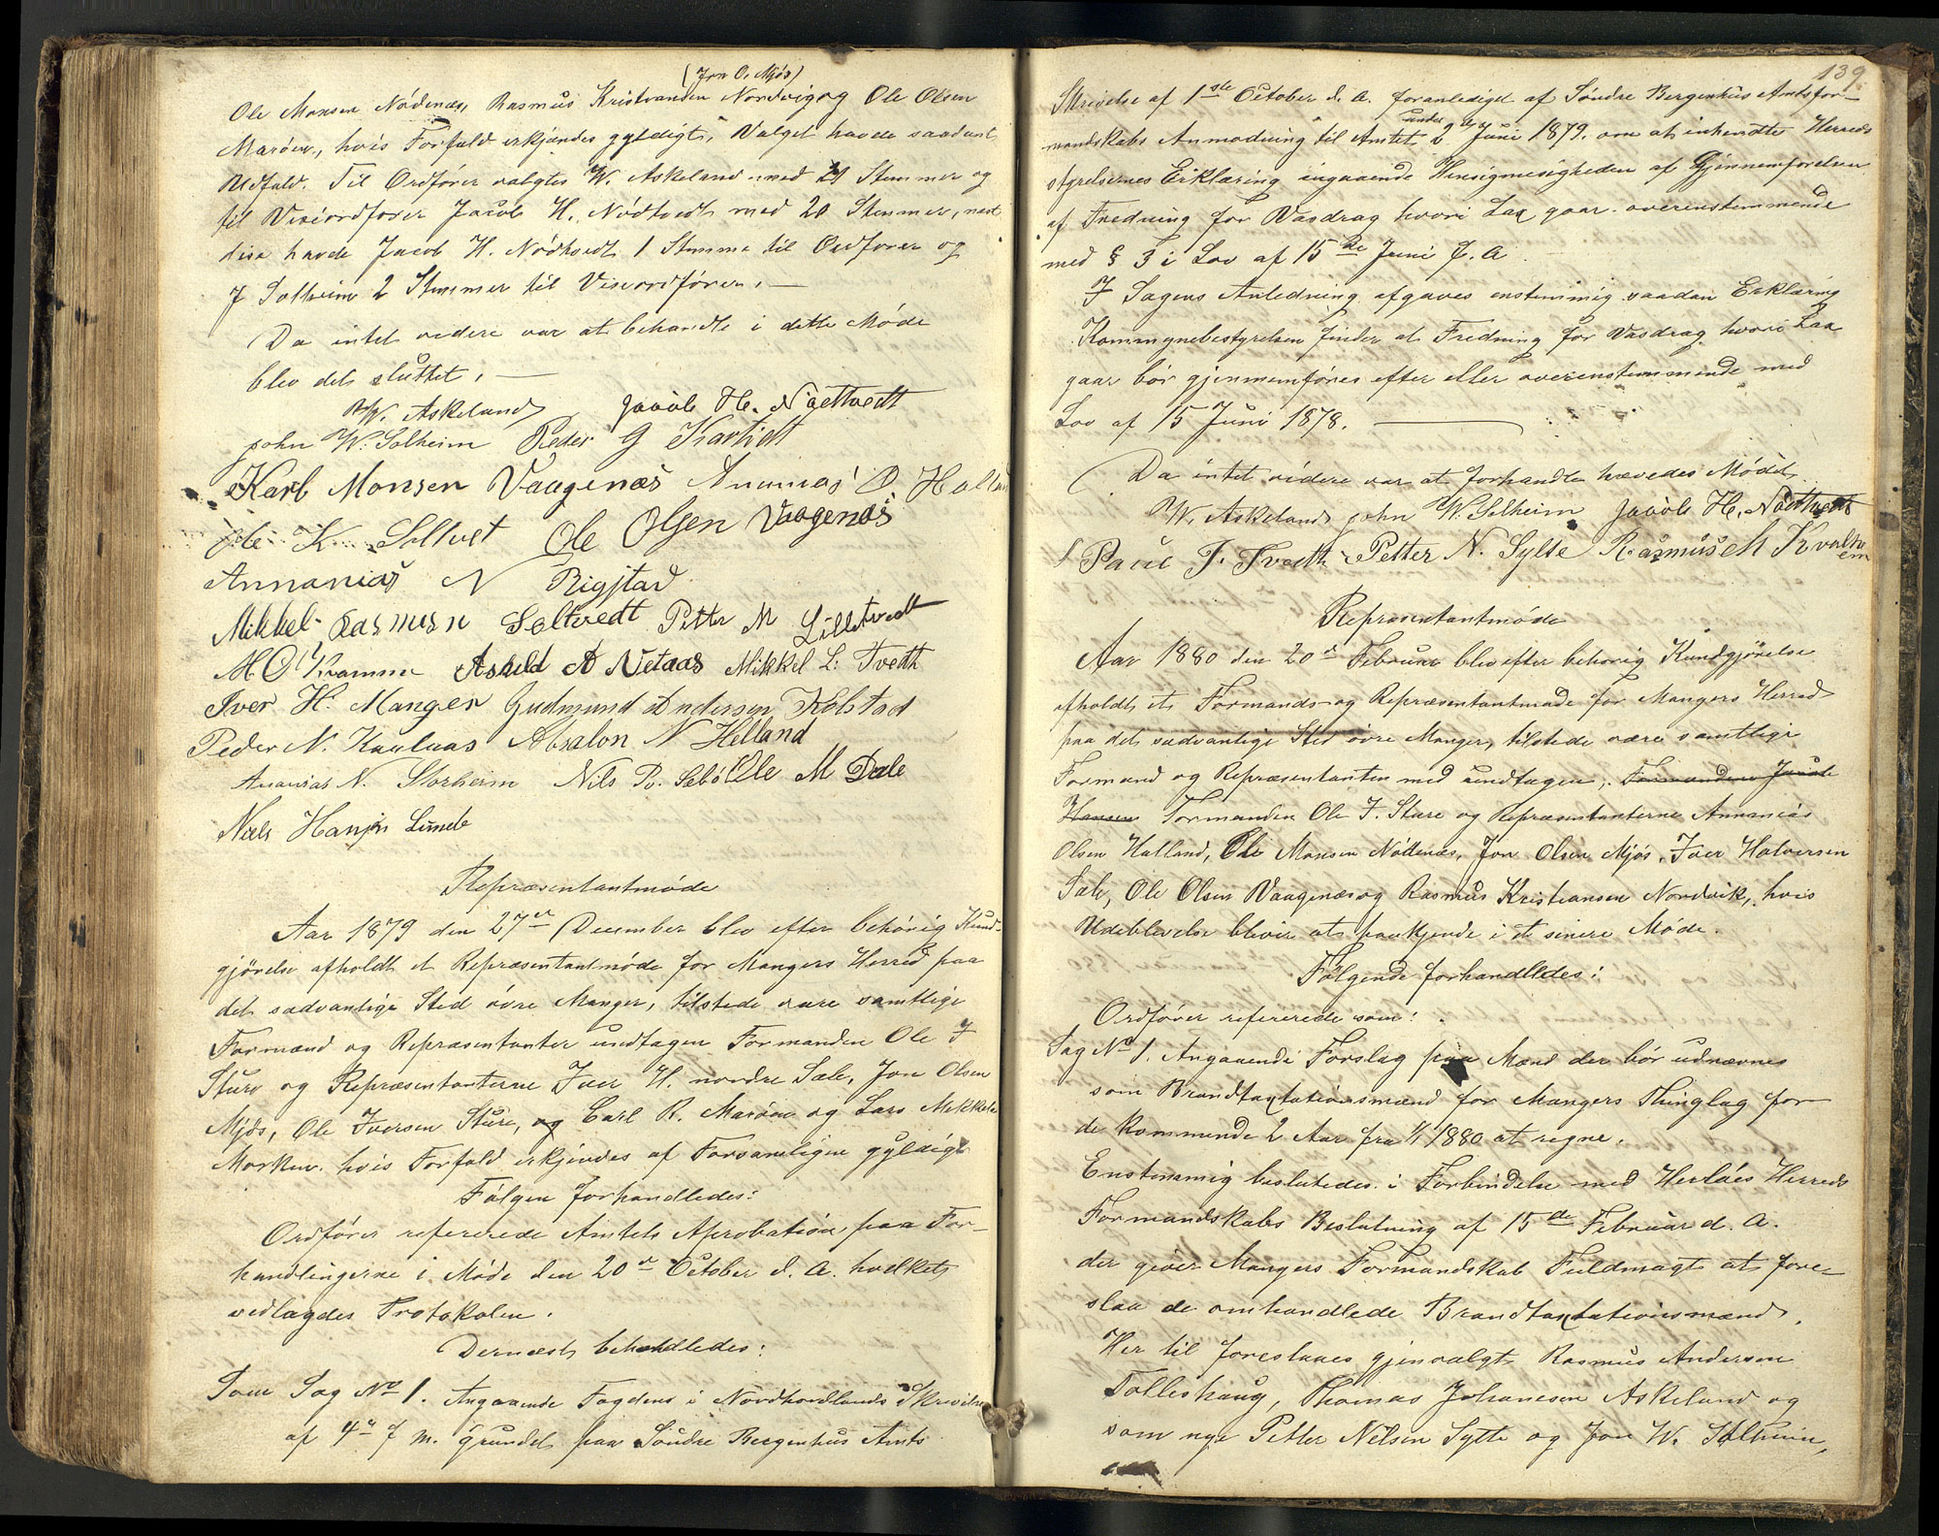 (Jon O. Mjös)
Ole Monsen Nödenæs, Rasmus Kristiansen Nordvig og Ole Olsen
Maröen, hvis Forfald erkjændes gyldigt. Valget havde saadant
Udfald. Til Ordförer valgtes W. Askeland med 21 Stemmer og
til Viseordförer Jacob H. Nödtvedt med 20 Stemmer, nest
disse havde Jacob H. Nödtvedt 1 Stemme til Ordförer og
J Solheim 2 Stemmer til Viseordförer. —
Da intet videre var at behandle i dette Möde
blev det sluttet. —
W. Askeland Jacob H. Nöttvedt
John W. Solheim Peder G
Karl Monsen Vaagenæs Ananias O
Ole K Soltvet Ole Olsen Vaagenæs
Annanias N Rigstad
Mikkel Rasmusn Soltvedt Petter M Lilletvedt
M. O. Kramme Askild A Netaas Mikkel L. Tvedt
Iver H. Manger Gudmund Andersen Kolstad
Peder N. Kaulaas Absalon N Helland
Ananias N. Storheim Nils P. Sebö Ole M Dale
Nels Hansen Lunde
Repræsentantmöde
Aar 1879 den 27de December blev efter behörig Kund-
gjörelse afholdt et Repræsentantmöde for Mangers Herred paa
det sædvanlige Sted övre Manger, tilstede vare samtlige
Formænd og Repræsentanter undtagen Formanden Ole J
Sture og Repræsentanterne Iver H. nordre Sæle, Jon Olsen
Mjös, Ole Iversen Sture, og Carl R. Maröen og Lars Mikkels
Morken. hvis Forfald erkjendes af Forsamligen gyldigt
Fölgen forhandledes:
Ordförer refererede Amtets Aprobation paa For-
handlingerne i Möde den 20de October d. A. hvilket
vedlagdes Protokolen.
Dernæst behandledes:
Som Sag No 1. Angaaende Fogdens i Nordhordlands Skrivelse
af 4de f. m. grundet paa Söndre Bergenhus Amts
139
Skrivelse af 1ste October d. A. foranlediget af Söndre Bergenhus Amtsfor-
mandskabs Anmodning til Amtet under 2de Juni 1879. om at inhendte Herreds
styrelsernes Erklæring angaaende Hensigmæsigheden af Gjennemförelsen
af Fredning for Vasdrag hvori Lax gaar overenstemmende
med § 3 i Lov af 15de Juni f. A.
I Sagens Anledning afgaves enstemmig saadan Erklæring
Kommunebestyrelsen finder at Fredning for Vasdrag hvori Lax
gaar bör gjennemföres efter eller overenstemmende med
Lov af 15 Juni 1878. —
Da intet videre var at forhandle hævedes Mödet.
W. Askeland John W. Solheim Jacob H. Nöttvedt
Paul J. Tvedt Petter N. Sylte Rasmus M Kvalheim
Repræsentantmöde
Aar 1880 den 20de Februar blev efter behörig Kundgjörelse
afholdt et Formands- og Repræsentantmöde for Mangers Herred
paa det sædvanlige Sted övre Manger, tilstede være samtlige
Formænd og Repræsentanter med undtagen; Formanden Jacob
Hansen Formanden Ole J. Sture og Repræsentanterne Annanias
Olsen Halland, Ole Monsen Nödenæs, Jon Olsen Mjös, Iver Halversen
Sæle, Ole Olsen Vaagenæs og Rasmus Kristiansen Nordvik, hvis
Udeblivelse blivir at paakjende i et senere Möde.
Fölgende forhandledes:
Ordförer refererede som:
Sag No 1. Angaaende Forslag paa Mænd der bör udnævnes
som Brandtaxtationsmænd for Mangers Thinglag for
de kommende 2 Aar fra 1/1 1880 at regne.
Enstemmig beslutedes i Forbindelse med Herlöes Herreds
Formandskabs Beslutning af 15de Februar d. A.
der giver Mangers Formandskab Fuldmagt at fore-
slaa de omhandlede Brandtaxtationsmænd.
Her til foreslaaes gjenvalgt Rasmus Andersen
Tolleshaug, Thomas Johanesen Askeland og
som nye Petter Nilsen Sylte og Jon W. Solheim,